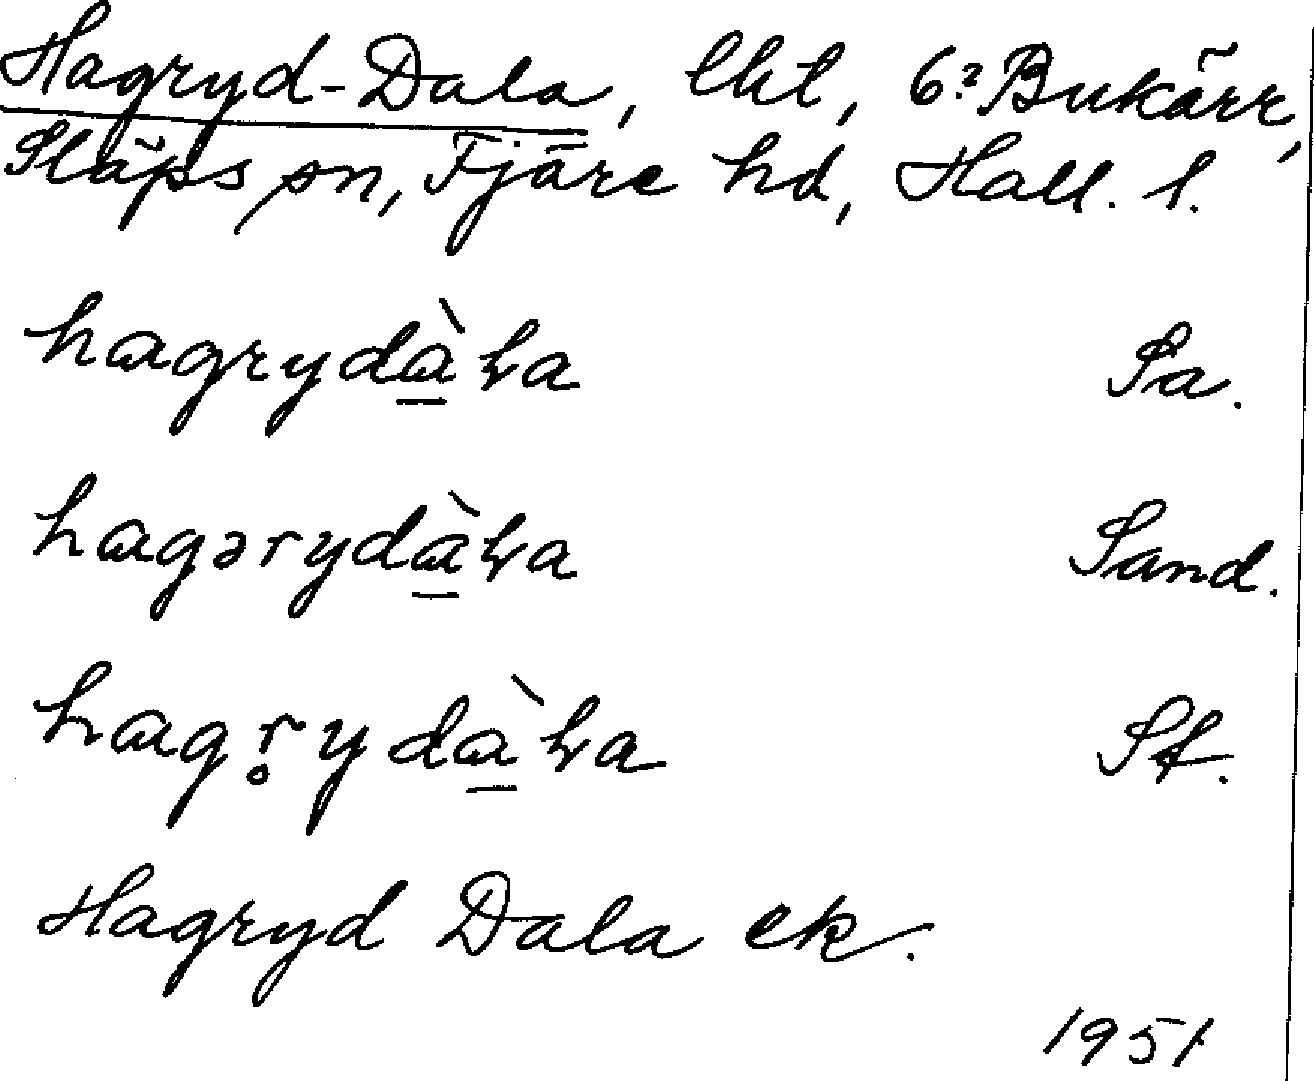 Hagryd-Dala, lht, 6:2 Bukärr,
Släps sn, Fjäre hd, Hall. l.
hagrydà̲ɫa Sa.
hagərydà̲ɫa Sand.
hagr̥ydà̲ɫa Sf.
Hagryd Dala ek.
1951